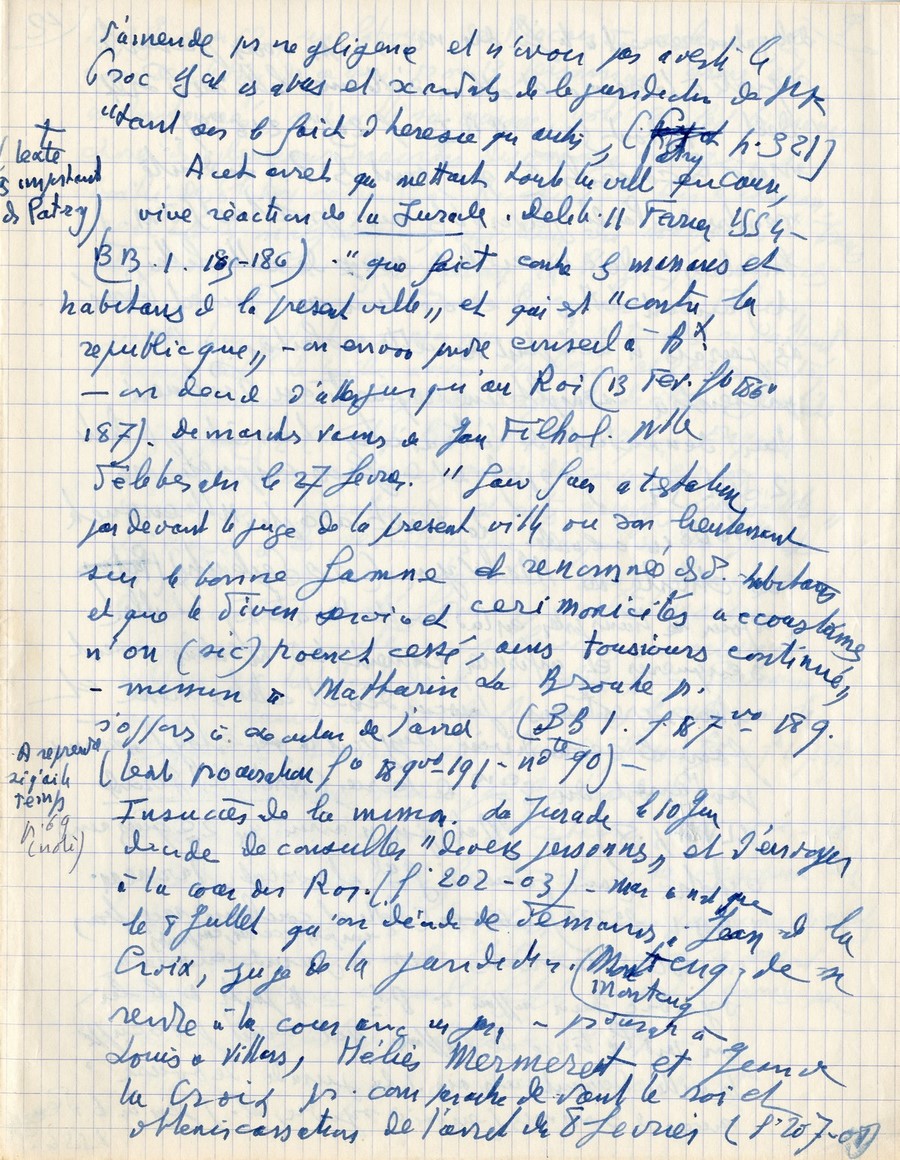 d'amende pr negligence et n'avoir pas averti le
Proc et abus et scandals de la juridiction de
"tant sur le faict d'heresie qu'autre" (Patry p. 321)
(texte
important
ds Patry)
A cet arret qui mettait toute la ville en cause,
vive réaction de la Jurade. Delib. 11 Fevrier 1554 -
(BB. 1. 185-186) - "que faict contre manans et
habitans de la present ville" et qui est "contre la
republicque" - on envoie prendre conseil à Bx.
- on decide d'aller jusqu'au Roi (13 Fev. fo 186vo
187). Demarches vaines de Jean Filhol. Nlle
Délibération le 27 fevrier. " faire attestation
par devant le juge de la present ville ou son lieutenant
sur la bonne famme et renommée habitans
et que le divin servixe et cerimonicités accoustumes
n'on (sic) poenct cessé, ains tousiours continué"
- mission à Mathurin La Brouhe pr.
s'opposer à execution de l'arret (BB 1. f 187 vo 189.
(texte procuration fo 189vo-191 - note 90) -
A reprendre
si j'ai le
temps
p. 69
(noté)
Insuccès de la mission. La Jurade le 10 Juin
decide de consulter "divers personnes" et d'envoyer
à la cour du Roy. (fo 202-03) - mais ce n'est que
le 8 Juillet qu'on décide de demander à Jean de la
Croix, juge de la juridiction. (Monteng) de se
Monteng
rendre à la cour - procurat à
Louis de Villars, Hélies Mermerest et Jean de
la Croix pr. comparaitre devant le roi et
obtenir cassation de l'arret du 8 fevrier (fo 207-08)